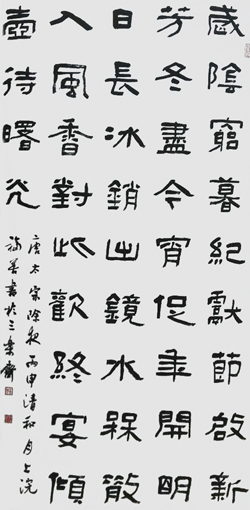 歲陰窮暮紀獻節啟新
芳冬盡今宵促秊開明
日長冰銷出鏡水槑散
入風香對此歡終宴傾
壺待曙光
唐太宗除夜丙申清和月上浣
書於三樂齋